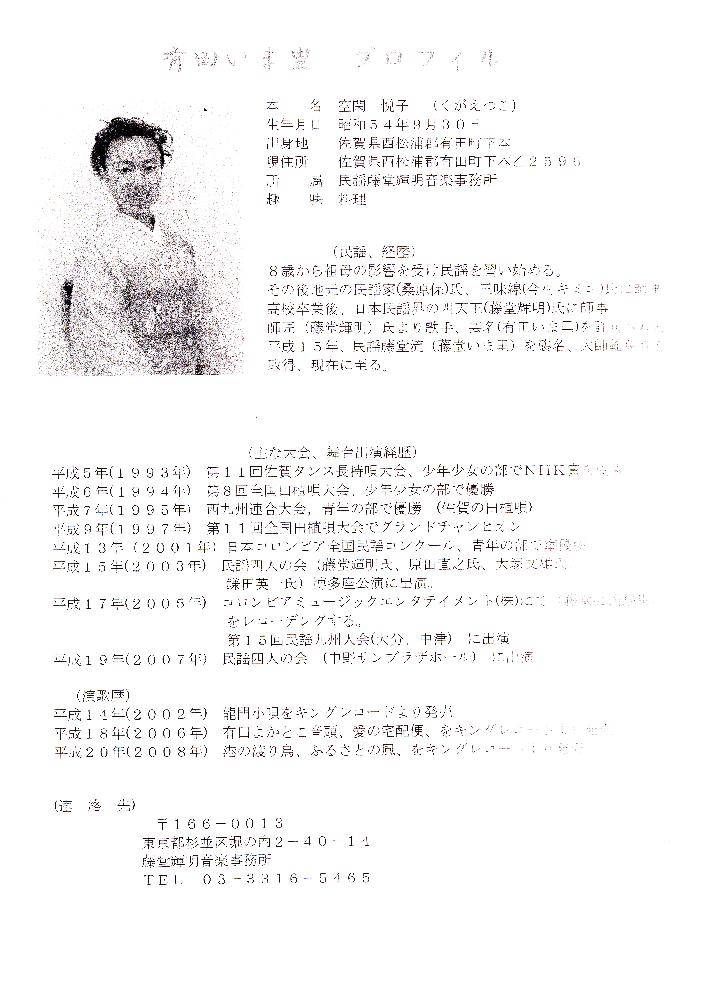 有田いま里 プロフィル
本　　名　空閑　悦子　（くがえつこ）
生年月日　昭和５４年９月３０日
出身地　　佐賀県西松浦郡有田町下本
現住所　　佐賀県西松浦郡有田町下本乙２５９５
所　　属　民謡藤堂輝明音楽事務所
趣　　味　料理
（民謡、経歴）
８歳から祖母の影響を受け民謡を習い始める。
その後地元の民謡家(桑原保)氏、三味線(今村キミコ)氏に師事
高校卒業後、日本民謡界の四天王(藤堂輝明)氏に師事
師匠（藤堂輝明）氏より歌手、芸名(有田いま里)を
平成１５年、民謡藤堂流（藤堂いま里）を襲名、大師範
取得、現在に至る。
（主な大会、舞台出演経歴）
平成５年(１９９３年)　第１１回佐賀タンス長持唄大会、少年少女の部でNHK賞
平成６年(１９９４年)　第８回全国田植唄大会、少年少女の部で優勝
平成７年(１９９５年)　西九州連合大会、青年の部で優勝　（佐賀の田植唄）
平成９年(１９９７年)　第１１回全国田植唄大会でグランドチャンピオン
平成１３年（２００１年）日本コロンビア全国民謡コンクール、青年の部で
平成１５年(２００３年)　民謡四人の会（藤堂輝明氏、原田直之氏、大塚文雄氏
鎌田英一氏）博多座公演に出演。
平成１７年(２００５年)　コロンビアミュージックエンタテイメント(株)にて
をレコーデングする。
第１５回民謡九州大会(大分、中津)　に出演
平成１９年(２００７年)　民謡四人の会　（中野サンプラザホール）　に出演
（演歌歴）
平成１４年(２００２年)　龍門小唄をキングレコードより発売
平成１８年(２００６年)　有田よかとこ音頭、愛の宅配便、をキングレコードより発売
平成２０年(２００８年)　港の渡り鳥、ふるさとの風、をキングレコードより発売
(連　絡　先)
〒１６６－００１３
東京都杉並区堀の内２－４０－１４
藤堂輝明音楽事務所
ＴＥＬ　０３－３３１６－５４６５